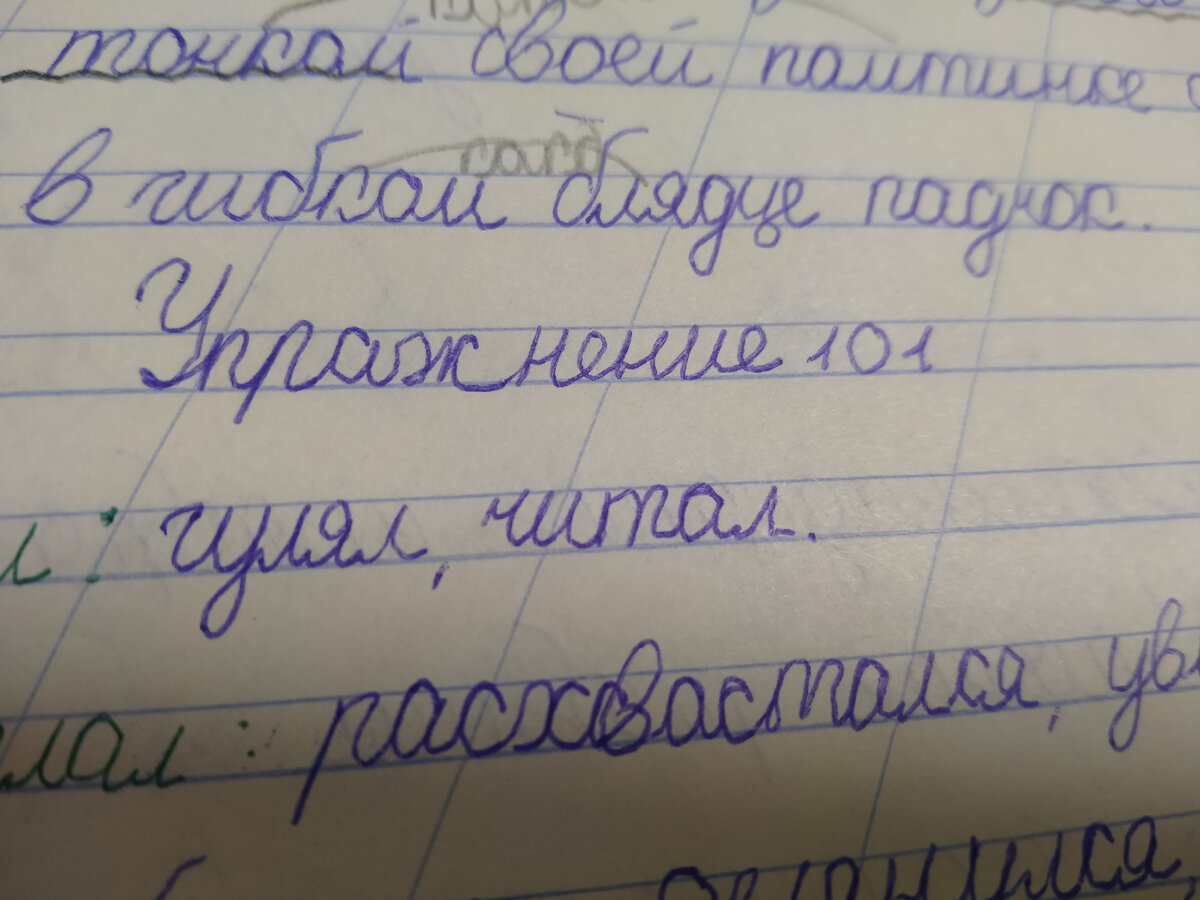 тонкой своей паутинке
в гибком блядце паднок.
Упражнение 101
л: гулял, читал.
лал: расхвастался, ув